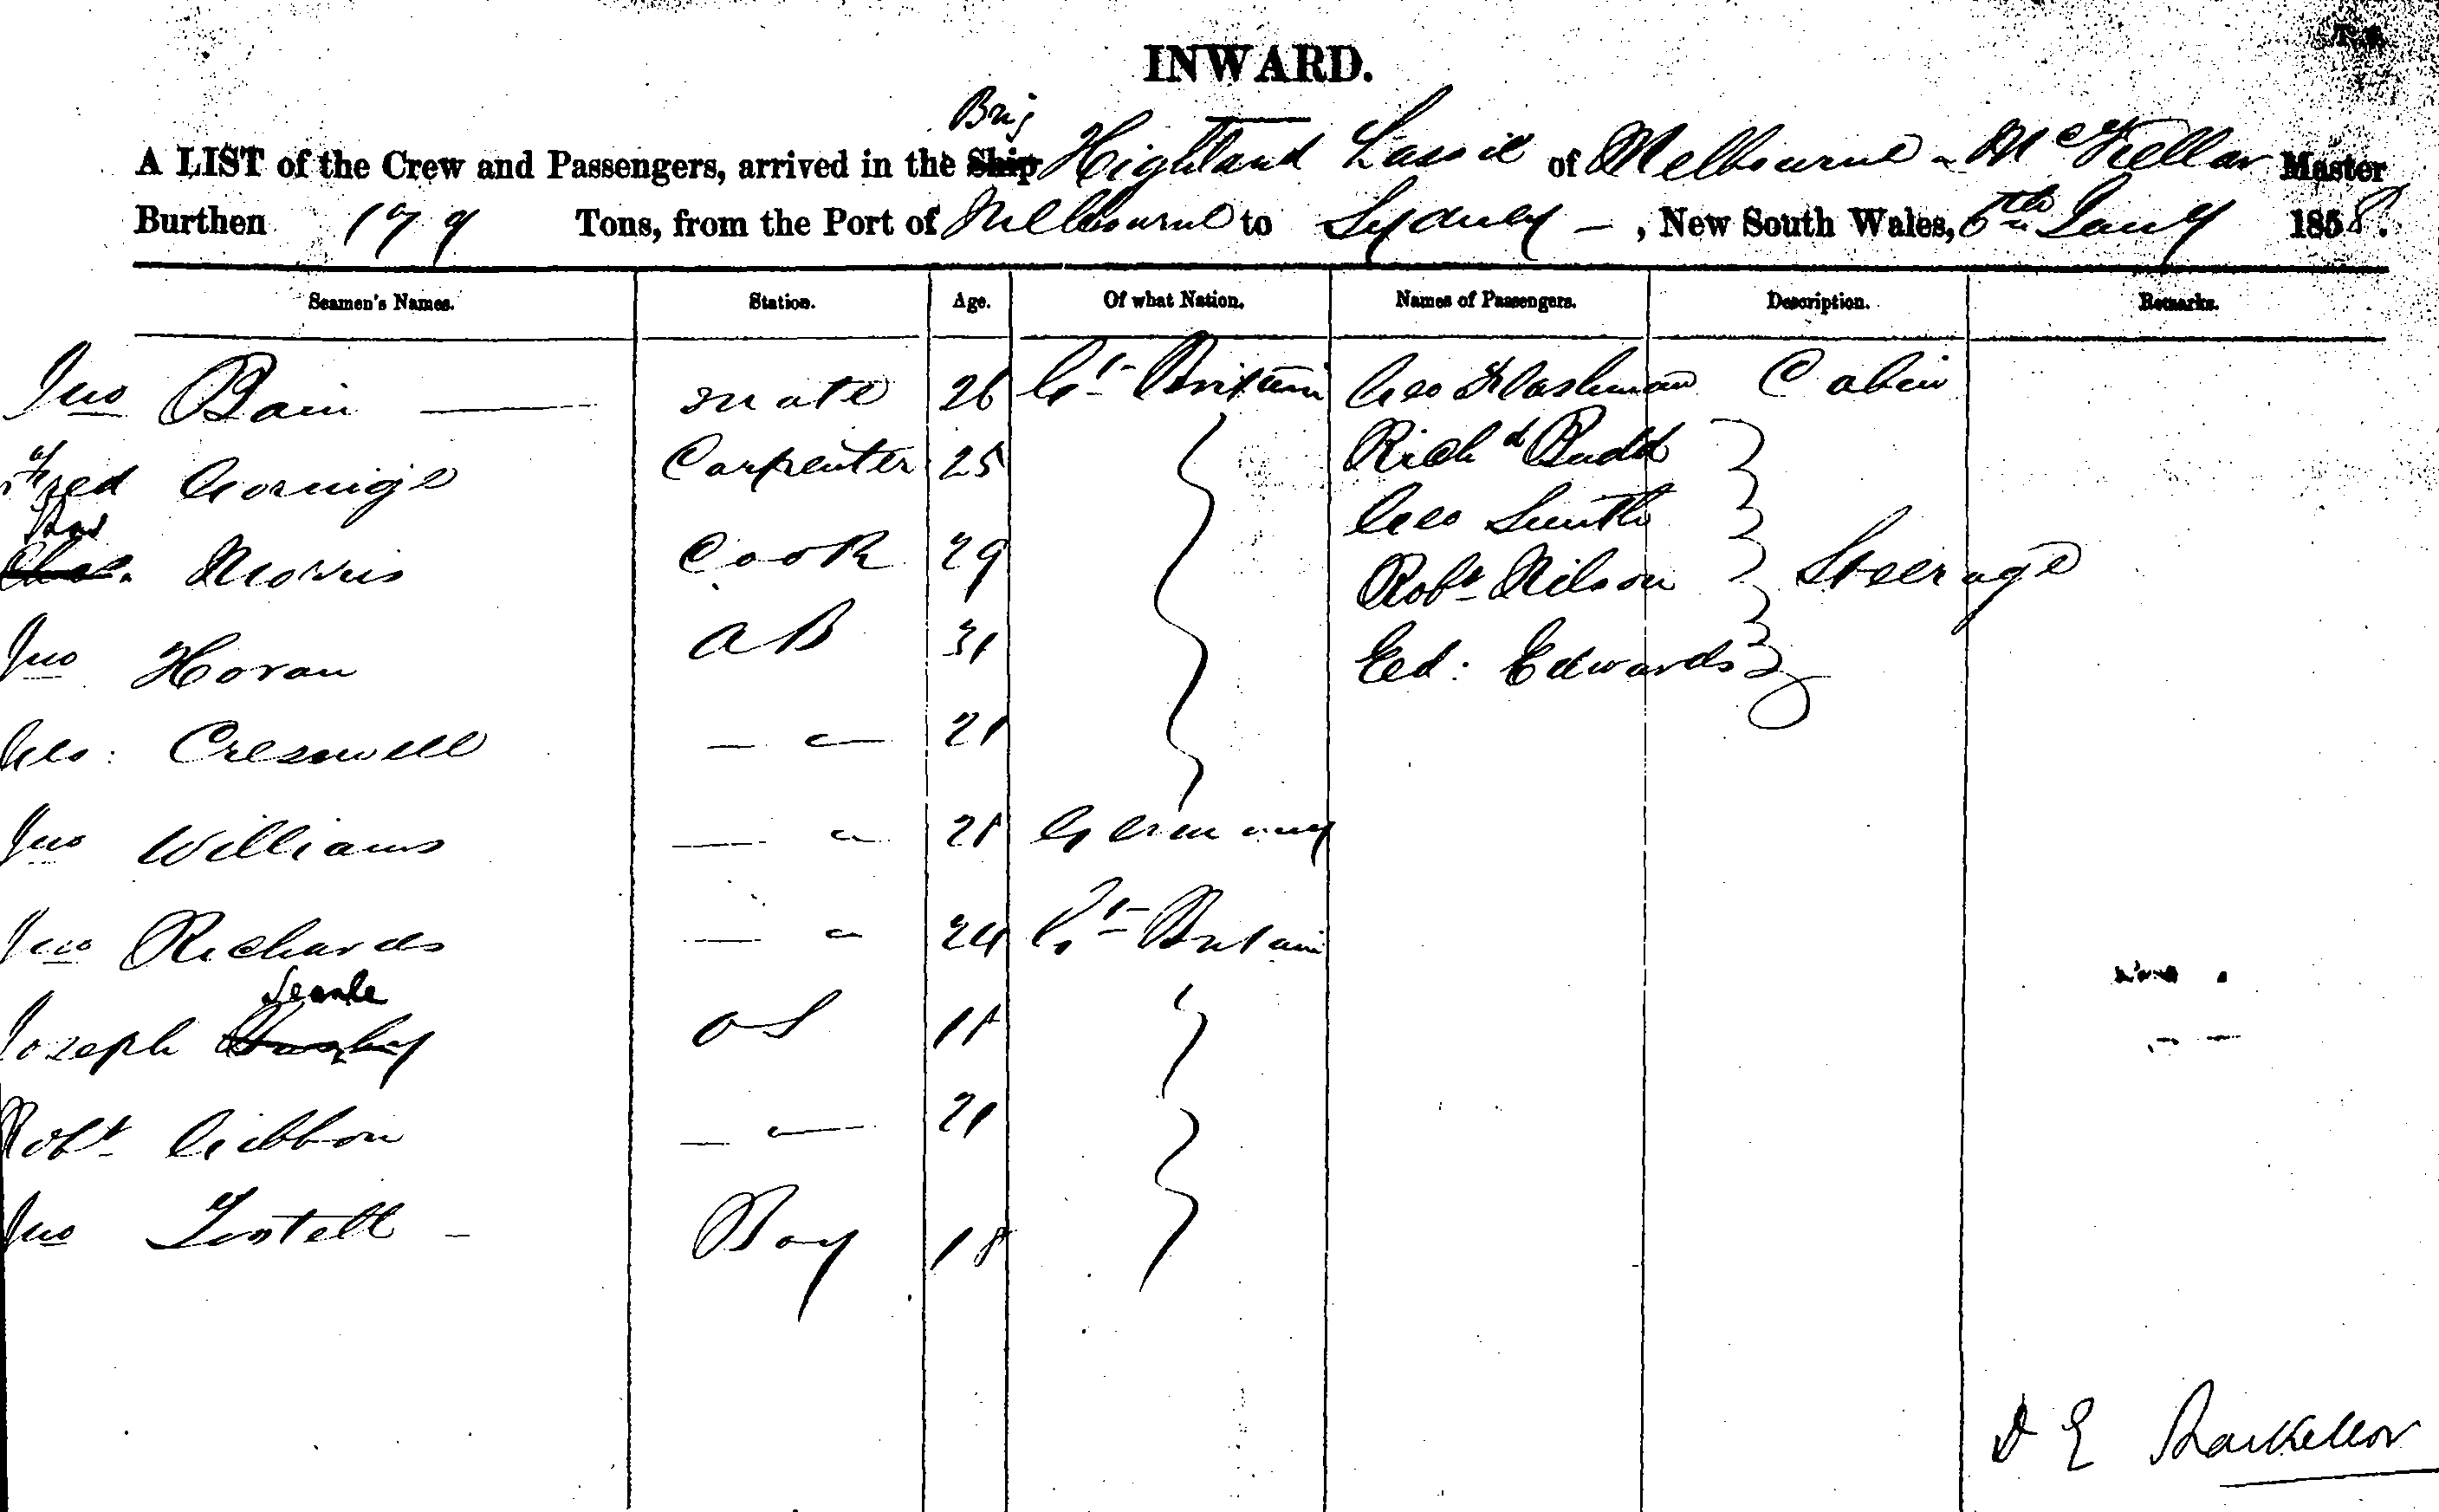 INWARD.
Brig
A LIST of the Crew and Passengers, arrived in the Ship Highland Lassie of Melbourne - McKellar Master
Burthen 179 Tons, from the Port of Melbourne to Sydney - , New South Wales, 6th Jany 1858.
Seamen's Names. Station. Age. Of what Nation. Names of Passengers. Description. Remarks.
Jno Bain mate 26 Gt Britain Geo Flashman Cabin
Fred Gornige Carpenter 25 Richd Budd
Geo Smith
Chas. Morris Cook 29 Robt Nilson Steerage
Jno Horan AB 31 Ed: Edwards
Geo: Cresswell — " — 21
Jno Williams — " 21 Germany
Jno Richards — " 24 Gt Britain
Searle
Joseph OS
Robt Gibbon — " — 21
Jno Boy 18
D E